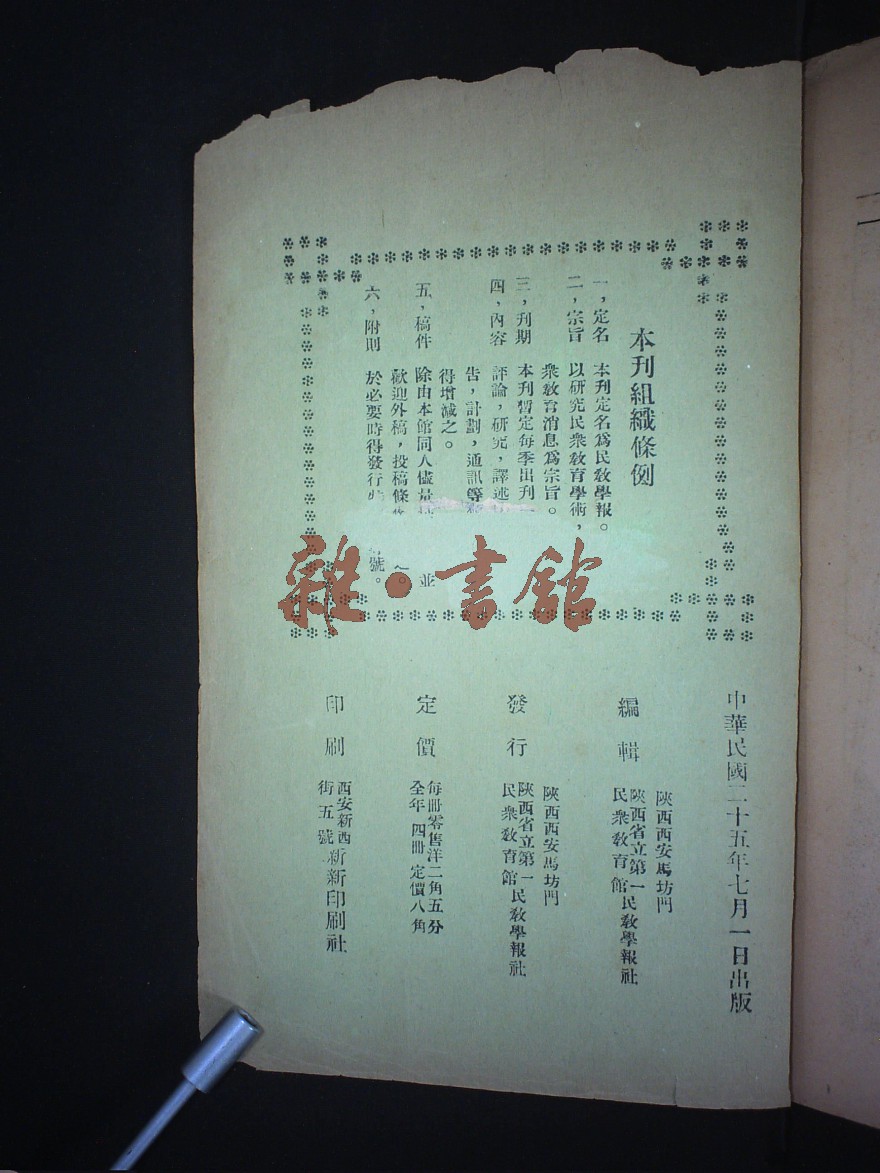 本刊組織條例
一，定名　本刊定名為民教學報。
二，宗旨　以研究民衆教育學術，
衆教育消息為宗旨。
三，刊期　本刊暫定每季出刊一
四，內容　評論，研究，譯述
告，計劃，通訊等
得增減之。
五，稿件　除由本館同人儘量　並
歡迎外稿，投稿條　。
六，附則　於必要時得發行　號。
中華民國二十五年七月一日出版
編輯
陝西西安馬坊門
陝西省立第一民衆教育館　民教學報社
發行
陝西西安馬坊門
陝西省立第一民衆教育館　民教學報社
定價
每冊零售洋二角五分
全年四冊定價八角
印刷
西安新西街五號　新新印刷社
雜·書館